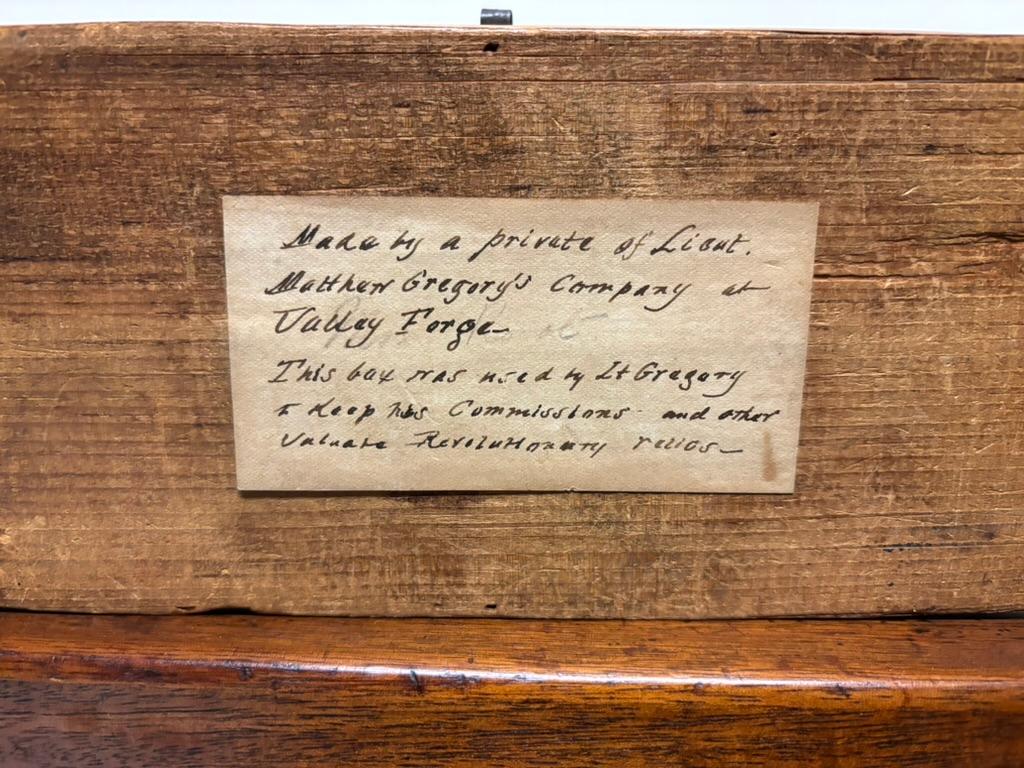 Made by a private of Lieut.
Matthew Gregory's Company at
Valley Forge
This box was used by Lt Gregory
to keep his Commissions and other
Revolutionary relics